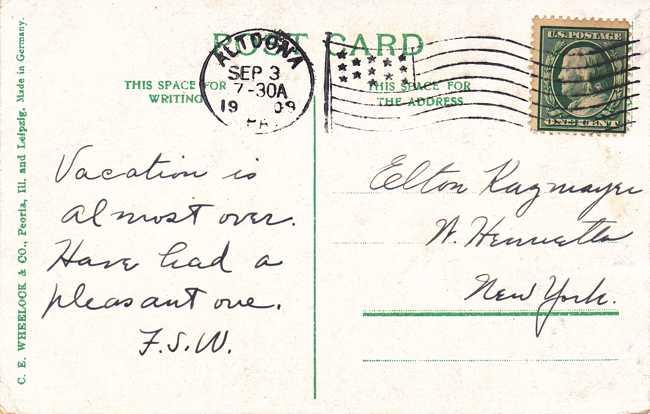 POST CARD
ALTOONA
SEP 3
7-30A
1909
PA
U.S. POSTAGE
ONE CENT
THIS SPACE FOR
WRITING
THIS SPACE FOR
THE ADDRESS
Vacation is
almost over.
Have had a
pleasant one.
F.S.W.
Elton Kagmayer
W. Henrietta
New York.
C. E. WHEELOCK & CO., Peoria, Ill. and Leipzig. Made in Germany.